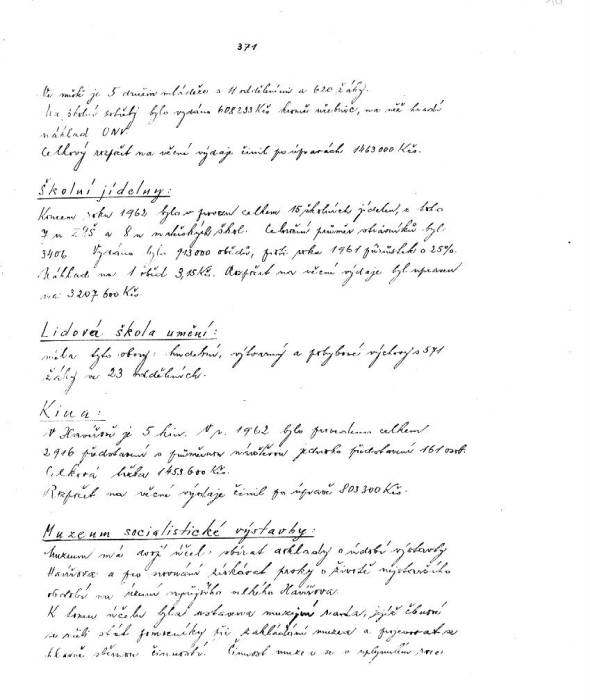 371
Ve městě je 5 družin mládeže s 11 odděleními a 620 žáky.
Na školní potřeby bylo vydáno 608233 Kčs kromě učebnic, na něž hradí
náklad ONV.
Celkový rozpočet na věcné výdaje činil po úpravách 1463000 Kčs.
Školní jídelny:
Koncem roku 1962 bylo v provozu celkem 15 školních jídelen, z toho
7 u ZDŠ a 8 u mateřských škol. Celkový průměr strávníků byl
3406. Vydáno bylo 913000 obědů, proti roku 1961 přírůstek o 25%.
Náklad na 1 oběd 3,15 Kčs. Rozpočet na věcné výdaje byl upraven
na 3207600 Kčs.
Lidová škola umění:
měla tyto obory: hudební, výtvarný a pohybové výchovy s 571
žáky ve 23 odděleních.
Kina:
V Havířově je 5 kin. V r. 1962 bylo provedeno celkem
2916 představení s průměrnou návštěvou jednoho představení 161 osob.
Celková tržba 1453600 Kčs.
Rozpočet na věcné výdaje činil po úpravě 803300 Kčs.
Muzeum socialistické výstavby:
Muzeum má svůj účel: sbírat doklady o údobí výstavby
Havířova a pro srovnání získávat prvky o životě
období na území nynějšího Havířova.
K tomu účelu byla ustavena muzejní rada, jejíž členové
se měli stát pomocníky při zakládání muzea a
hlavně sběrnou činností. Činnost muzea se v uplynulém roce